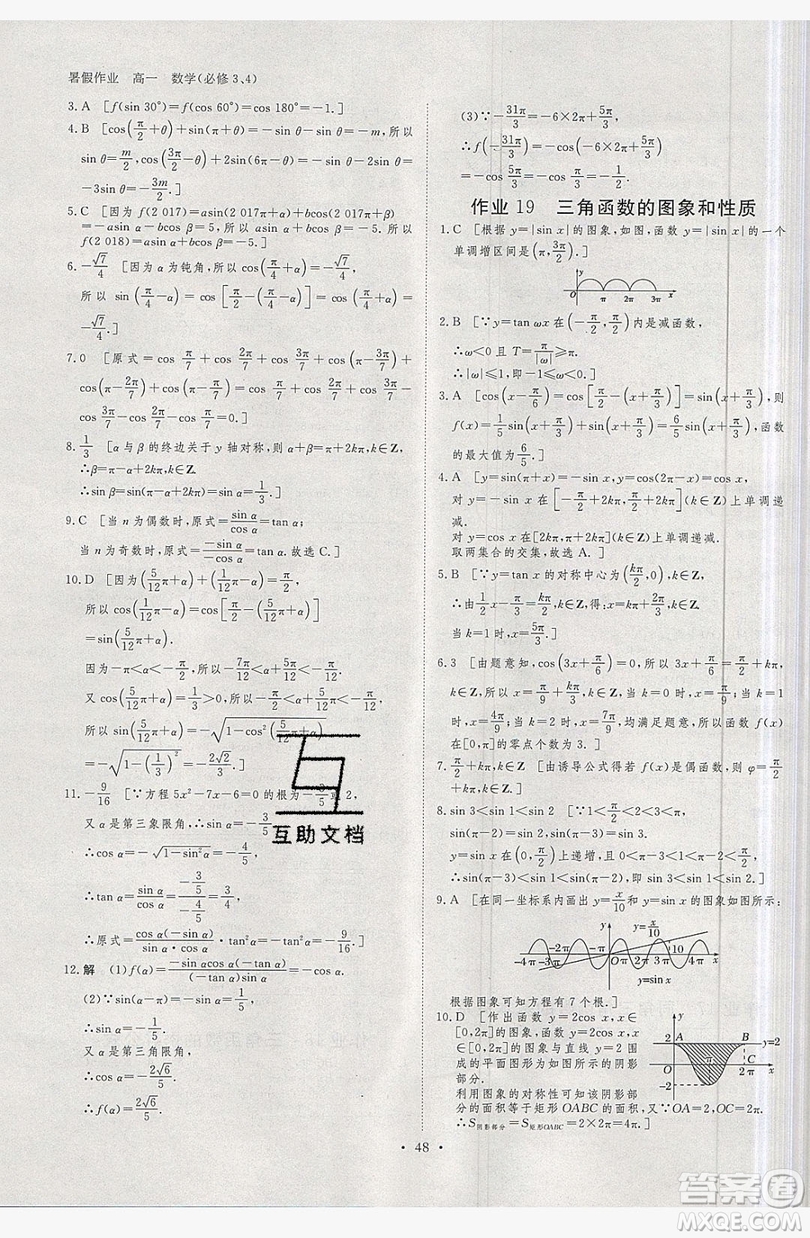 暑假作业 高一 数学(必修3、4)
3.A [f(sin 30°)=f(cos 60°)=cos 180°=-1.]
4.B [cos(π/2+θ)+sin(π+θ)=-sin θ-sin θ=-m,所以
sin θ=m/2,cos(3π/2-θ)+2sin(6π-θ)=-sin θ-2sin θ=
-3sin θ=-3m/2.]
5.C [因为f(2 017)=asin(2 017π+α)+bcos(2 017π+
β)=
6.-√7/4 [因为α为钝角,所以cos(π/4+α)=
所以 sin(π/4-α)=cos[π/2-(π/4-α)]=cos(π/4+α)=
-√7/4.]
7.0 [原式=cos π/7+cos 2π/7+cos 3π/7+
cos 3π/7=0.]
8.1/3 [α与β的终边关于y轴对称,则α+β=π+2kπ,k∈Z
∴β=π-α+2kπ,k∈Z.
∴sin β=sin(π-α+2kπ)=sin α=1/3.]
9.C [当n为偶数时,原式=sin α/cos α=tan α;
当n为奇数时,原式=-sin α/-cos α=tan α.故选C.]
10.D [因为(5/12π+α)+(π/12-α)=π/2,
所以cos(π/12-α)=cos[π/2-(5/12π+α)]
=sin(5/12π+α).
因为-π<α<-π/2,所以-7π/12<α+5π/12<-π/12.
又cos(5/12π+α)=1/3>0,所以-π/2<α+5π/12<-π/12,
所以sin(5/12π+α)=-√(1-cos²(5/12π+α))
=-√(1-(1/3)²)=-2√2/3.]
11.-9/16 [∵方程5x²-7x-6=0的根为-3/5或2,
又α是第三象限角,∴sin α=-3/5
∴cos α=-√(1-sin²α)=-4/5,
∴tan α=sin α/cos α=(-3/5)/(-4/5)=3/4.
∴原式=
·tan²α=-tan²α=-9/16.]
12.解 (1)f(α)=-sin αcos α(-tan α)/(-tan α)sin α=-cos α.
(2)∵sin(α-π)=-sin α=1/5,
∴sin α=-1/5.
又α是第三象限角,
∴cos α=-2√6/5.
∴f(α)=2√6/5.
(3)∵-31π/3=-6×2π+5π/3,
∴f(-31π/3)=-cos(-6×2π+5π/3)
=-cos 5π/3=-cos π/3=-1/2.
作业19 三角函数的图象和性质
1.C [根据y=|sin x|的图象,如图,函数y=|sin x|的一个
单调增区间是(π,3π/2).]
y
O π 2π 3π x
2.B [∵y=tan ωx在(-π/2,π/2)内是减函数,
∴ω<0且T=π/|ω|≥π.
∴|ω|≤1,即-1≤ω<0.]
3.A [cos(x-π/6)=cos[π/2-(x+π/3)]=sin(x+π/3),则
f(x)=1/5sin(x+π/3)+sin(x+π/3)=6/5sin(x+π/3),函数
的最大值为6/5.]
4.A [y=sin(π+x)=-sin x,y=cos(2π-x)=cos x,
对y=-sin x在[-π/2+2kπ,π/2+2kπ](k∈Z)上单调递
减.
对y=cos x在[2kπ,π+2kπ](k∈Z)上单调递减,
取两集合的交集,故选A.]
5.B [∵y=tan x的对称中心为(kπ/2,0),k∈Z,
∴由1/2x-π/3=kπ/2,k∈Z,得:x=kπ+2π/3,k∈Z.
当k=1时,x=5π/3.]
6.3 [由题意知,cos(3x+π/6)=0,所以3x+π/6=π/2+kπ,
k∈Z,所以x=π/9+kπ/3,k∈Z,当k=0时,x=π/9;当k=1
时,x=4π/9;当k=2时,x=7π/9,均满足题意,所以函数f(x)
在[0,π]的零点个数为3.]
8.sin 3<sin 1<sin 2 [∵1<π/2<2<3<π,
sin(π-2)=sin 2,sin(π-3)=sin 3.
y=sin x在(0,π/2)上递增,且0<π-3<1<π-2<π/2,
∴sin(π-3)<sin 1<sin(π-2),即sin 3<sin 1<sin 2.]
9.A [在同一坐标系内画出y=x/10和y=sin x的图象如图所示:
y
y=x/10
-4π -3π -2π -π O π 2π 3π 10 4π x
y=sin x
根据图象可知方程有7个根.]
10.C [作出函数y=2cos x,x∈
[0,2π]的图象,函数y=2cos x,x∈
[0,2π]的图象与直线y=2围
成的平面图形为如图所示的阴影
部分.
利用图象的对称性可知该阴影
部分的面积等于矩形OABC的面积,又∵OA=2,OC=2π,
∴S阴影部分=S矩形OABC=2×2π=4π.]
y
2 A B y=2
O π C 2π x
-2
互助文档
· 48 ·
答案圈
MXQE.COM